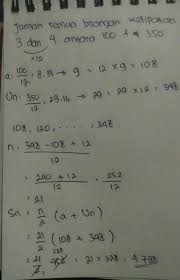 Jumlah semua bilangan kelipatan
3 dan 4 antara 100 & 350
x12
a: 100/12 : 8,33 → 9 = 12 x 9 = 108
Un: 350/12, 29,16 → 29 = 29 x 12 = 348
108, 120, ..... , 348
n = 348 - 108 + 12 / 12
= 240 + 12 / 12 = 252 / 12
= 21
Sn = n/2 (a + Un)
= 21/2 (108 + 348)
= 21/2 228 = 21 x 228 = 4.788